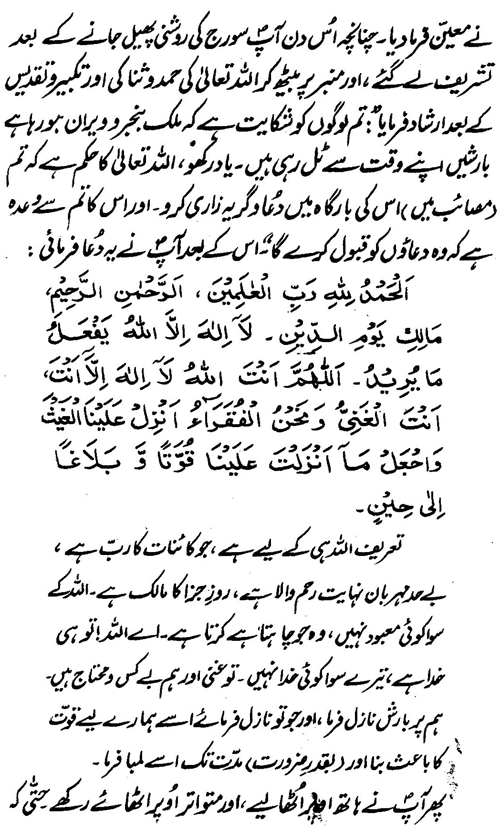 نے معیّن فرما دیا۔ چنانچہ اُس دن آپؐ سورج کی روشنی پھیل جانے کے بعد
تشریف لے گئے، اور منبر پر بیٹھ کر اللہ تعالیٰ کی حمد و ثنا کی اور تکبیر و تقدیس
کے بعد ارشاد فرمایا: تم لوگوں کو شکایت ہے کہ ملک بنجر و ویران ہو رہا ہے
بارشیں اپنے وقت سے ٹل رہی ہیں۔ یاد رکھو، اللہ تعالیٰ کا حکم ہے کہ تم
(مصائب میں) اس کی بارگاہ میں دُعا و گریہ زاری کرو۔ اور اس کا تم سے وعدہ
ہے کہ وہ دعاؤں کو قبول کرے گا" اس کے بعد آپؐ نے یہ دُعا فرمائی :
اَلْحَمْدُ لِلّٰهِ رَبِّ الْعٰلَمِيْنَ، اَلرَّحْمٰنِ الرَّحِيْمِ،
مَالِكِ يَوْمِ الدِّيْنِ۔ لَآ اِلٰهَ اِلَّا اللّٰهُ يَفْعَلُ
مَا يُرِيْدُ۔ اَللّٰهُمَّ اَنْتَ اللّٰهُ لَآ اِلٰهَ اِلَّا اَنْتَ،
اَنْتَ الْغَنِىُّ وَنَحْنُ الْفُقَرَآءُ اَنْزِلْ عَلَيْنَا الْغَيْثَ
وَاجْعَلْ مَآ اَنْزَلْتَ عَلَيْنَا قُوَّتًا وَّ بَلَاغًا
اِلٰى حِيْنٍ۔
تعریف اللہ ہی کے لیے ہے، جو کائنات کا ربّ ہے،
بے حد مہربان نہایت رحم والا ہے، روزِ جزا کا مالک ہے۔ اللہ کے
سوا کوئی معبود نہیں، وہ جو چاہتا ہے کرتا ہے۔ اے اللہ! تو ہی
خدا ہے، تیرے سوا کوئی خدا نہیں۔ تو غنی اور ہم بے کس و محتاج ہیں۔
ہم پر بارش نازل فرما، اور جو تو نازل فرمائے اسے ہمارے لیے قوّت
کا باعث بنا اور (بقدرِ ضرورت) مدّت تک اسے لمبا فرما۔
پھر آپؐ نے ہاتھ اوپر اُٹھا لیے، اور متواتر اُوپر اٹھائے رکھے۔ حتّٰی کہ